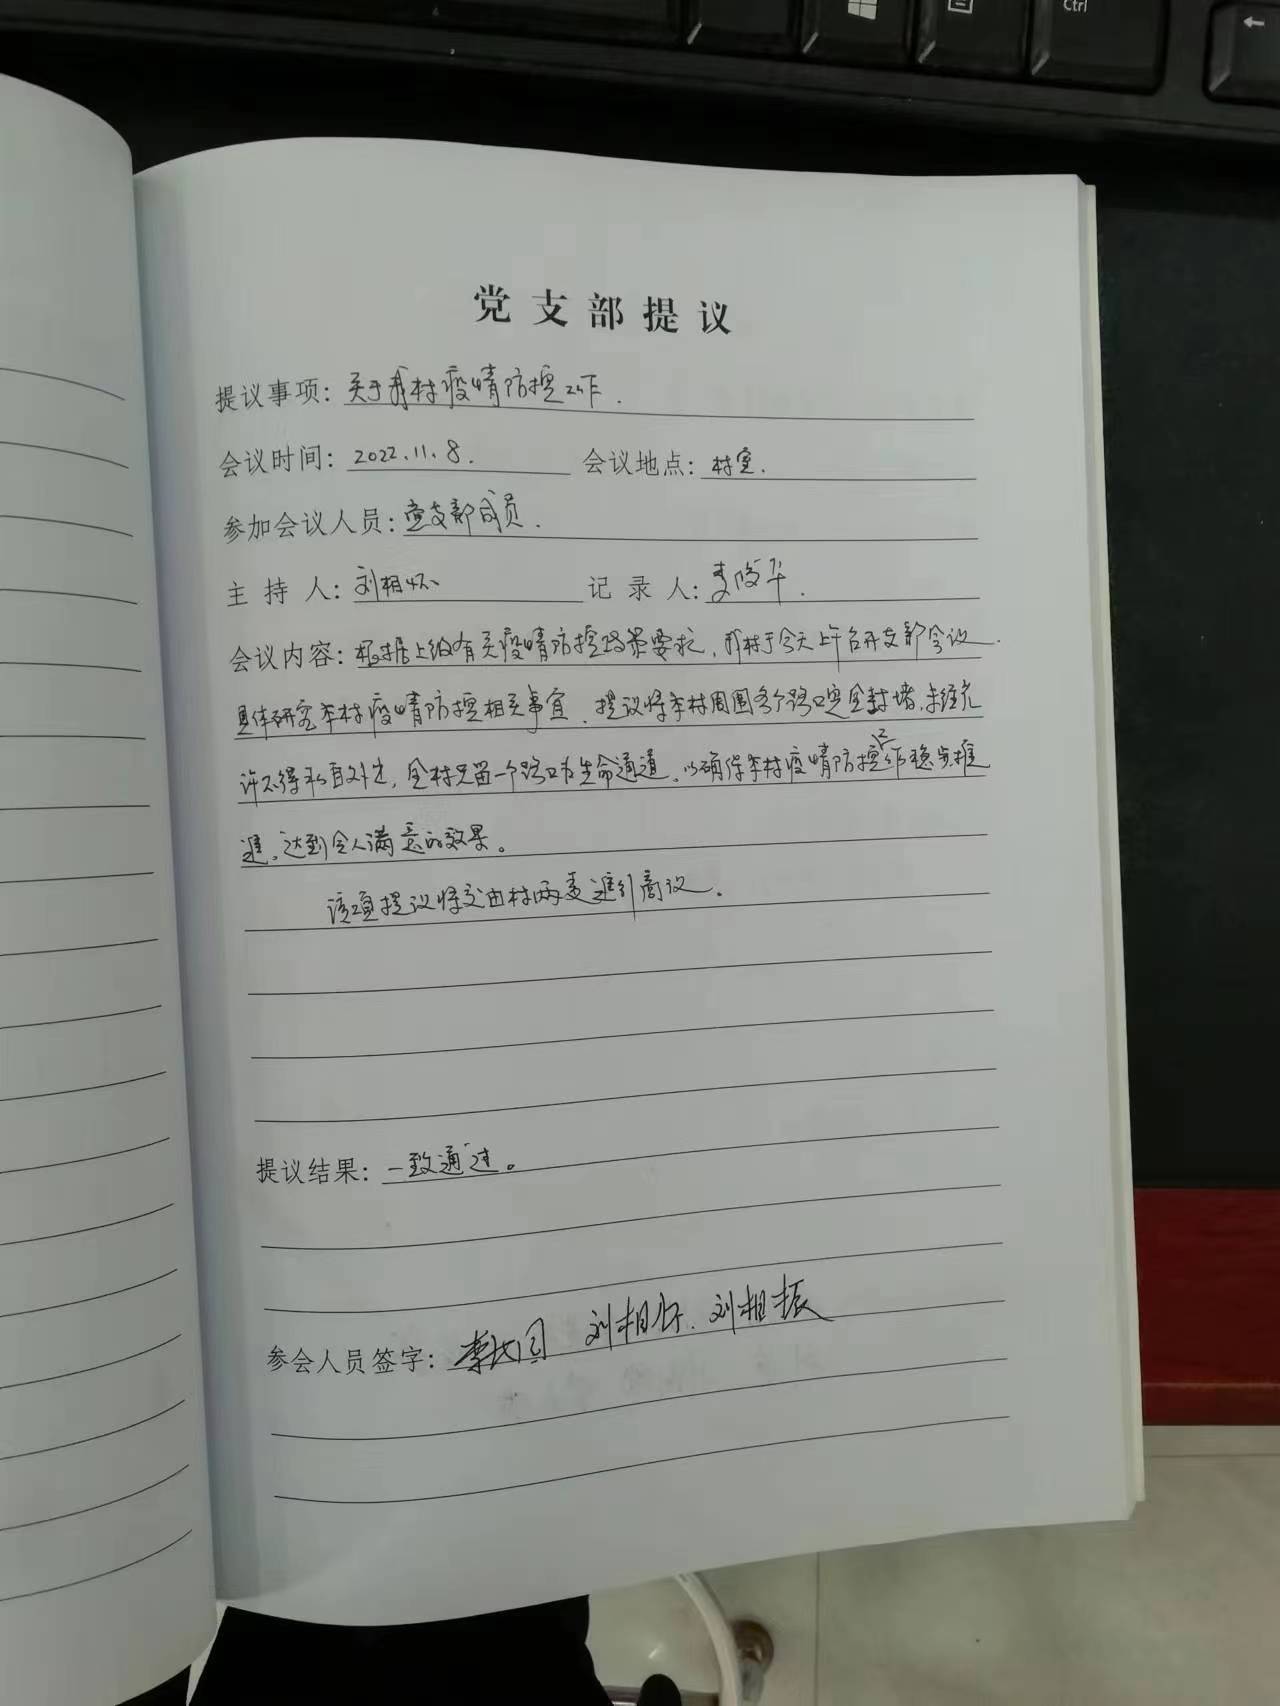 Ctrl
党支部提议
提议事项：关于我村疫情防控工作.
会议时间：2022.11.8. 会议地点：村室.
参加会议人员：党支部成员.
主持人：刘相怀 记录人：李俊华.
会议内容：根据上级有关疫情防控政策要求，我村于今天上午召开支部会议.
具体研究本村疫情防控相关事宜，提议将本村周围各个路口完全封堵，未经允
许不得私自外出，全村只留一个路口为生命通道，以确保本村疫情防控工作稳步推
进，达到令人满意的效果。
该项提议将交由村两委进行商议.
提议结果：一致通过。
参会人员签字： 刘相怀. 刘相振